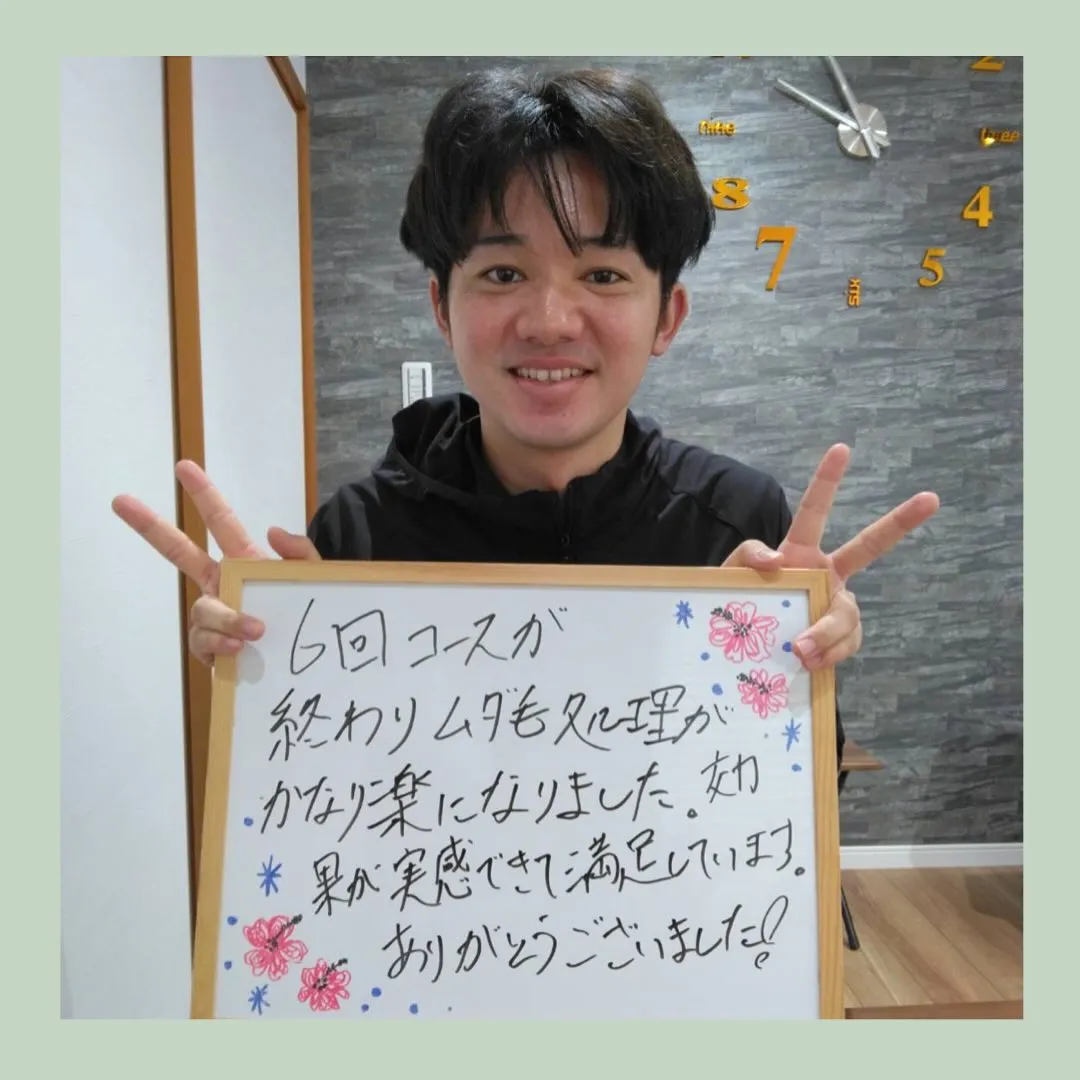 6回コースが
終わりムダ毛処理が
かなり楽になりました。効
果が実感できて満足しています。
ありがとうございました!
2
three
4
5
six
7
8
nine